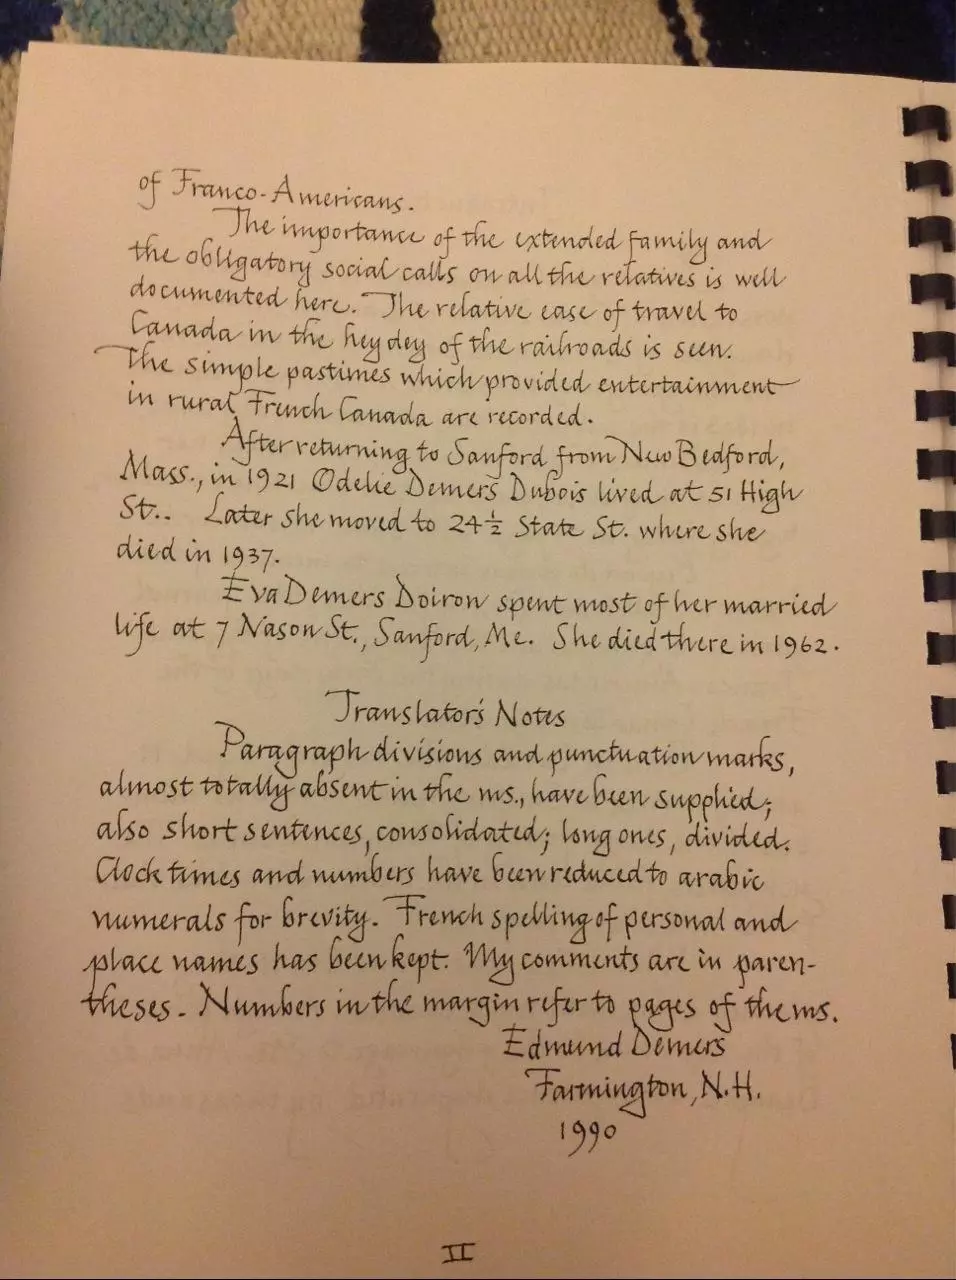 of Franco-Americans.
The importance of the extended family and
the obligatory social calls on all the relatives is well
documented here. The relative ease of travel to
Canada in the heyday of the railroads is seen.
The simple pastimes which provided entertainment
in rural French Canada are recorded.
After returning to Sanford from New Bedford,
Mass., in 1921 Odelie Demers Dubois lived at 51 High
St.. Later she moved to 24½ State St. where she
died in 1937.
Eva Demers Doiron spent most of her married
life at 7 Nason St., Sanford, Me. She died there in 1962.
Translator's Notes
Paragraph divisions and punctuation marks,
almost totally absent in the ms., have been supplied;
also short sentences, consolidated; long ones, divided.
Clock times and numbers have been reduced to arabic
numerals for brevity. French spelling of personal and
place names has been kept. My comments are in paren-
theses. Numbers in the margin refer to pages of the ms.
Edmund Demers
Farmington, N.H.
1990
II